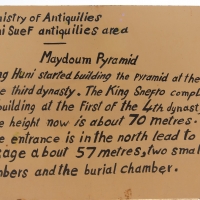 nistry of Antiquities
ni Suef antiquities area
Maydoum Pyramid
ng Huni started building the Pyramid at the
e third dynasty. The King Snefro compl
building at the First of the 4th dynast
e height now is about 70 metres.
e entrance is in the north lead to
sage about 57 metres, two smal
mbers and the burial chamber.